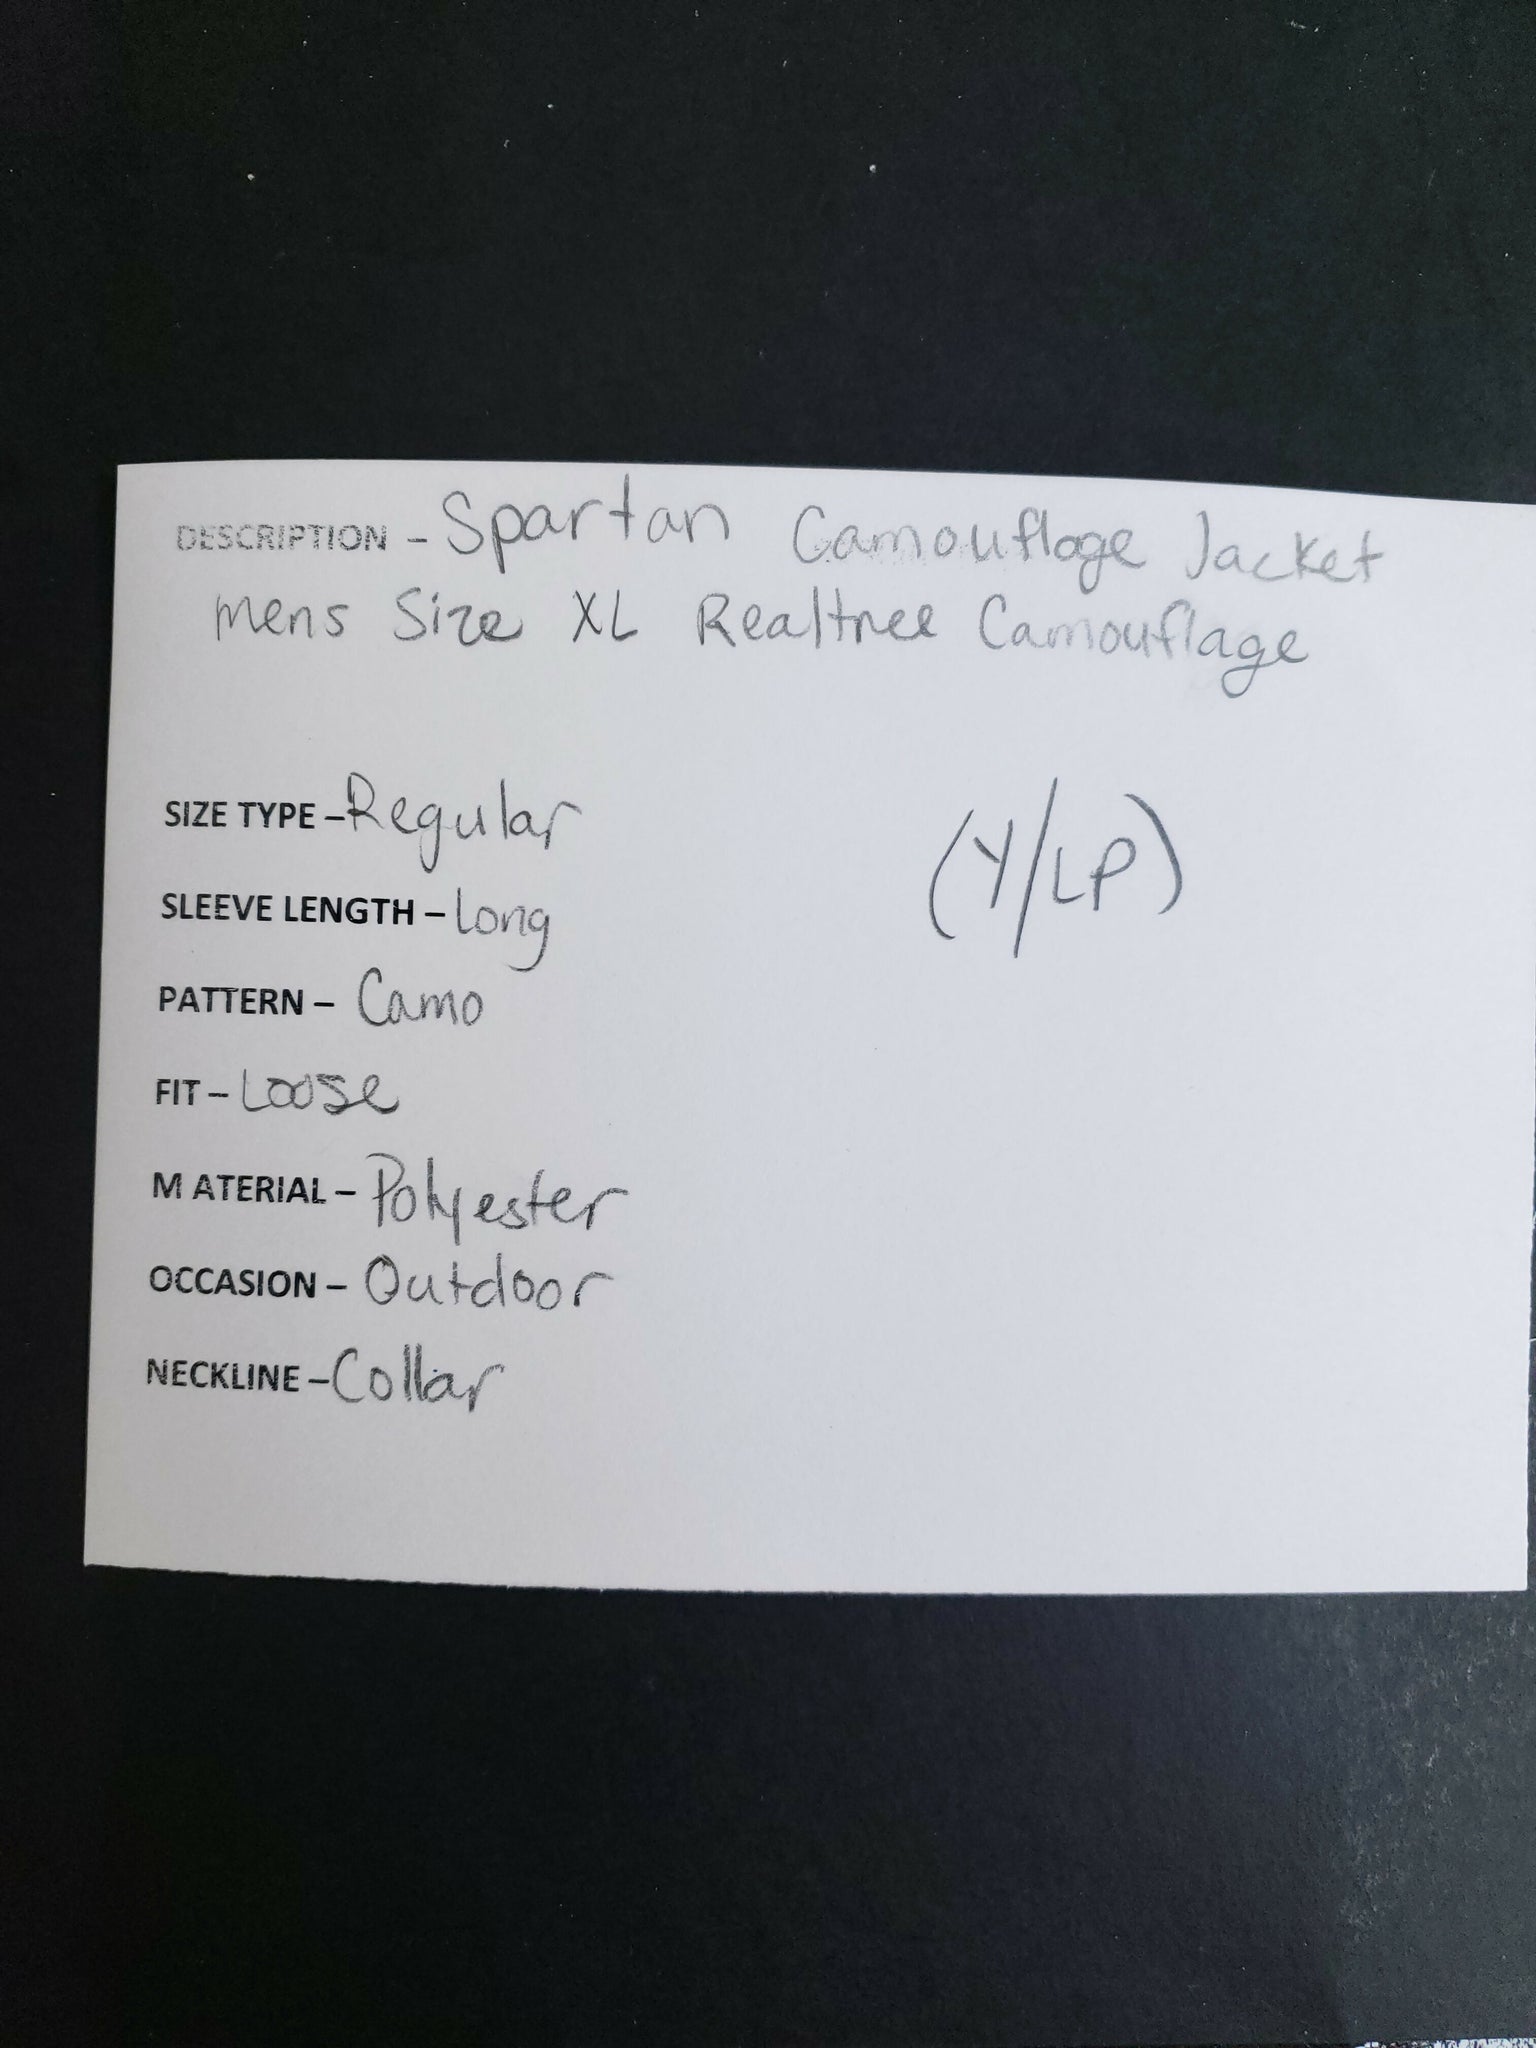 DESCRIPTION - Spartan Camouflage Jacket
mens Size XL Realtree Camouflage
SIZE TYPE – Regular
(Y/LP)
SLEEVE LENGTH – Long
PATTERN – Camo
FIT – Loose
M ATERIAL – Polyester
OCCASION – Outdoor
NECKLINE – Collar